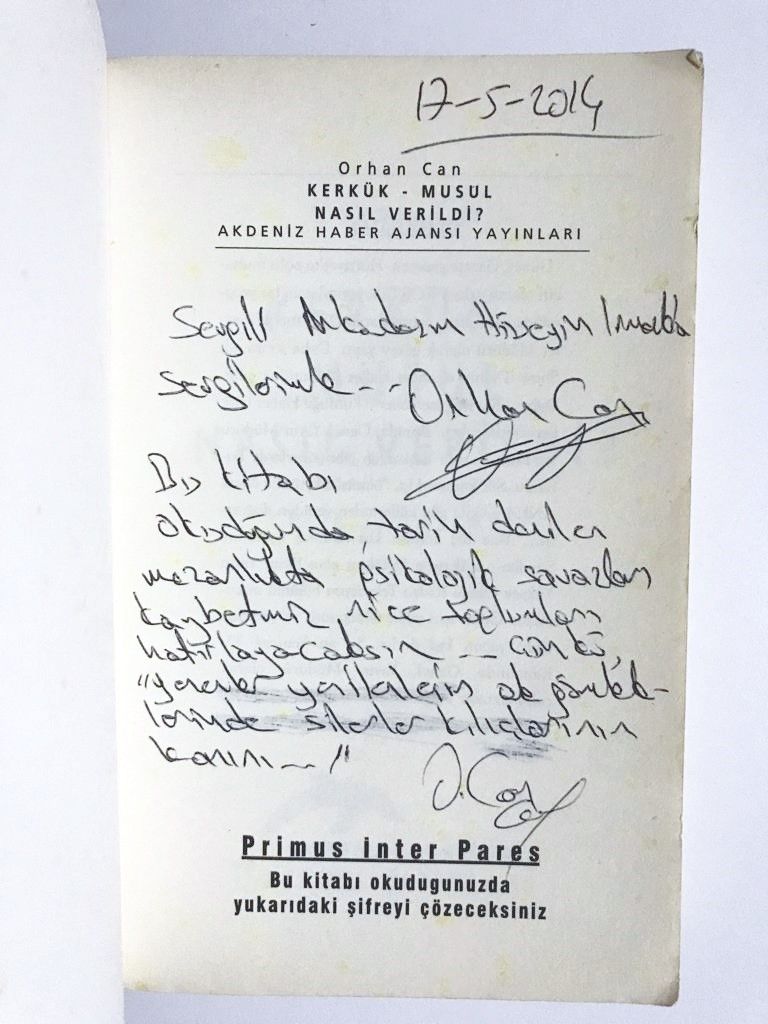 17-5-2014
Orhan Can
KERKÜK - MUSUL
NASIL VERİLDİ?
AKDENİZ HABER AJANSI YAYINLARI
Sevgili Arkadaşım Hüseyin
Sevgilerimle - - Orhan Can
Bu kitabı
okuduğunda, tarih denilen
mezarlıkta psikolojik savaşları
kaybetmiş nice toplumları
hatırlayacaksın - - - Çünkü,
"yenenler yenilenlerin ak pamuk-
larında silerler kılıçlarının
kanını - - - "
O. Can
Primus inter Pares
Bu kitabı okudugunuzda
yukarıdaki şifreyi çözeceksiniz